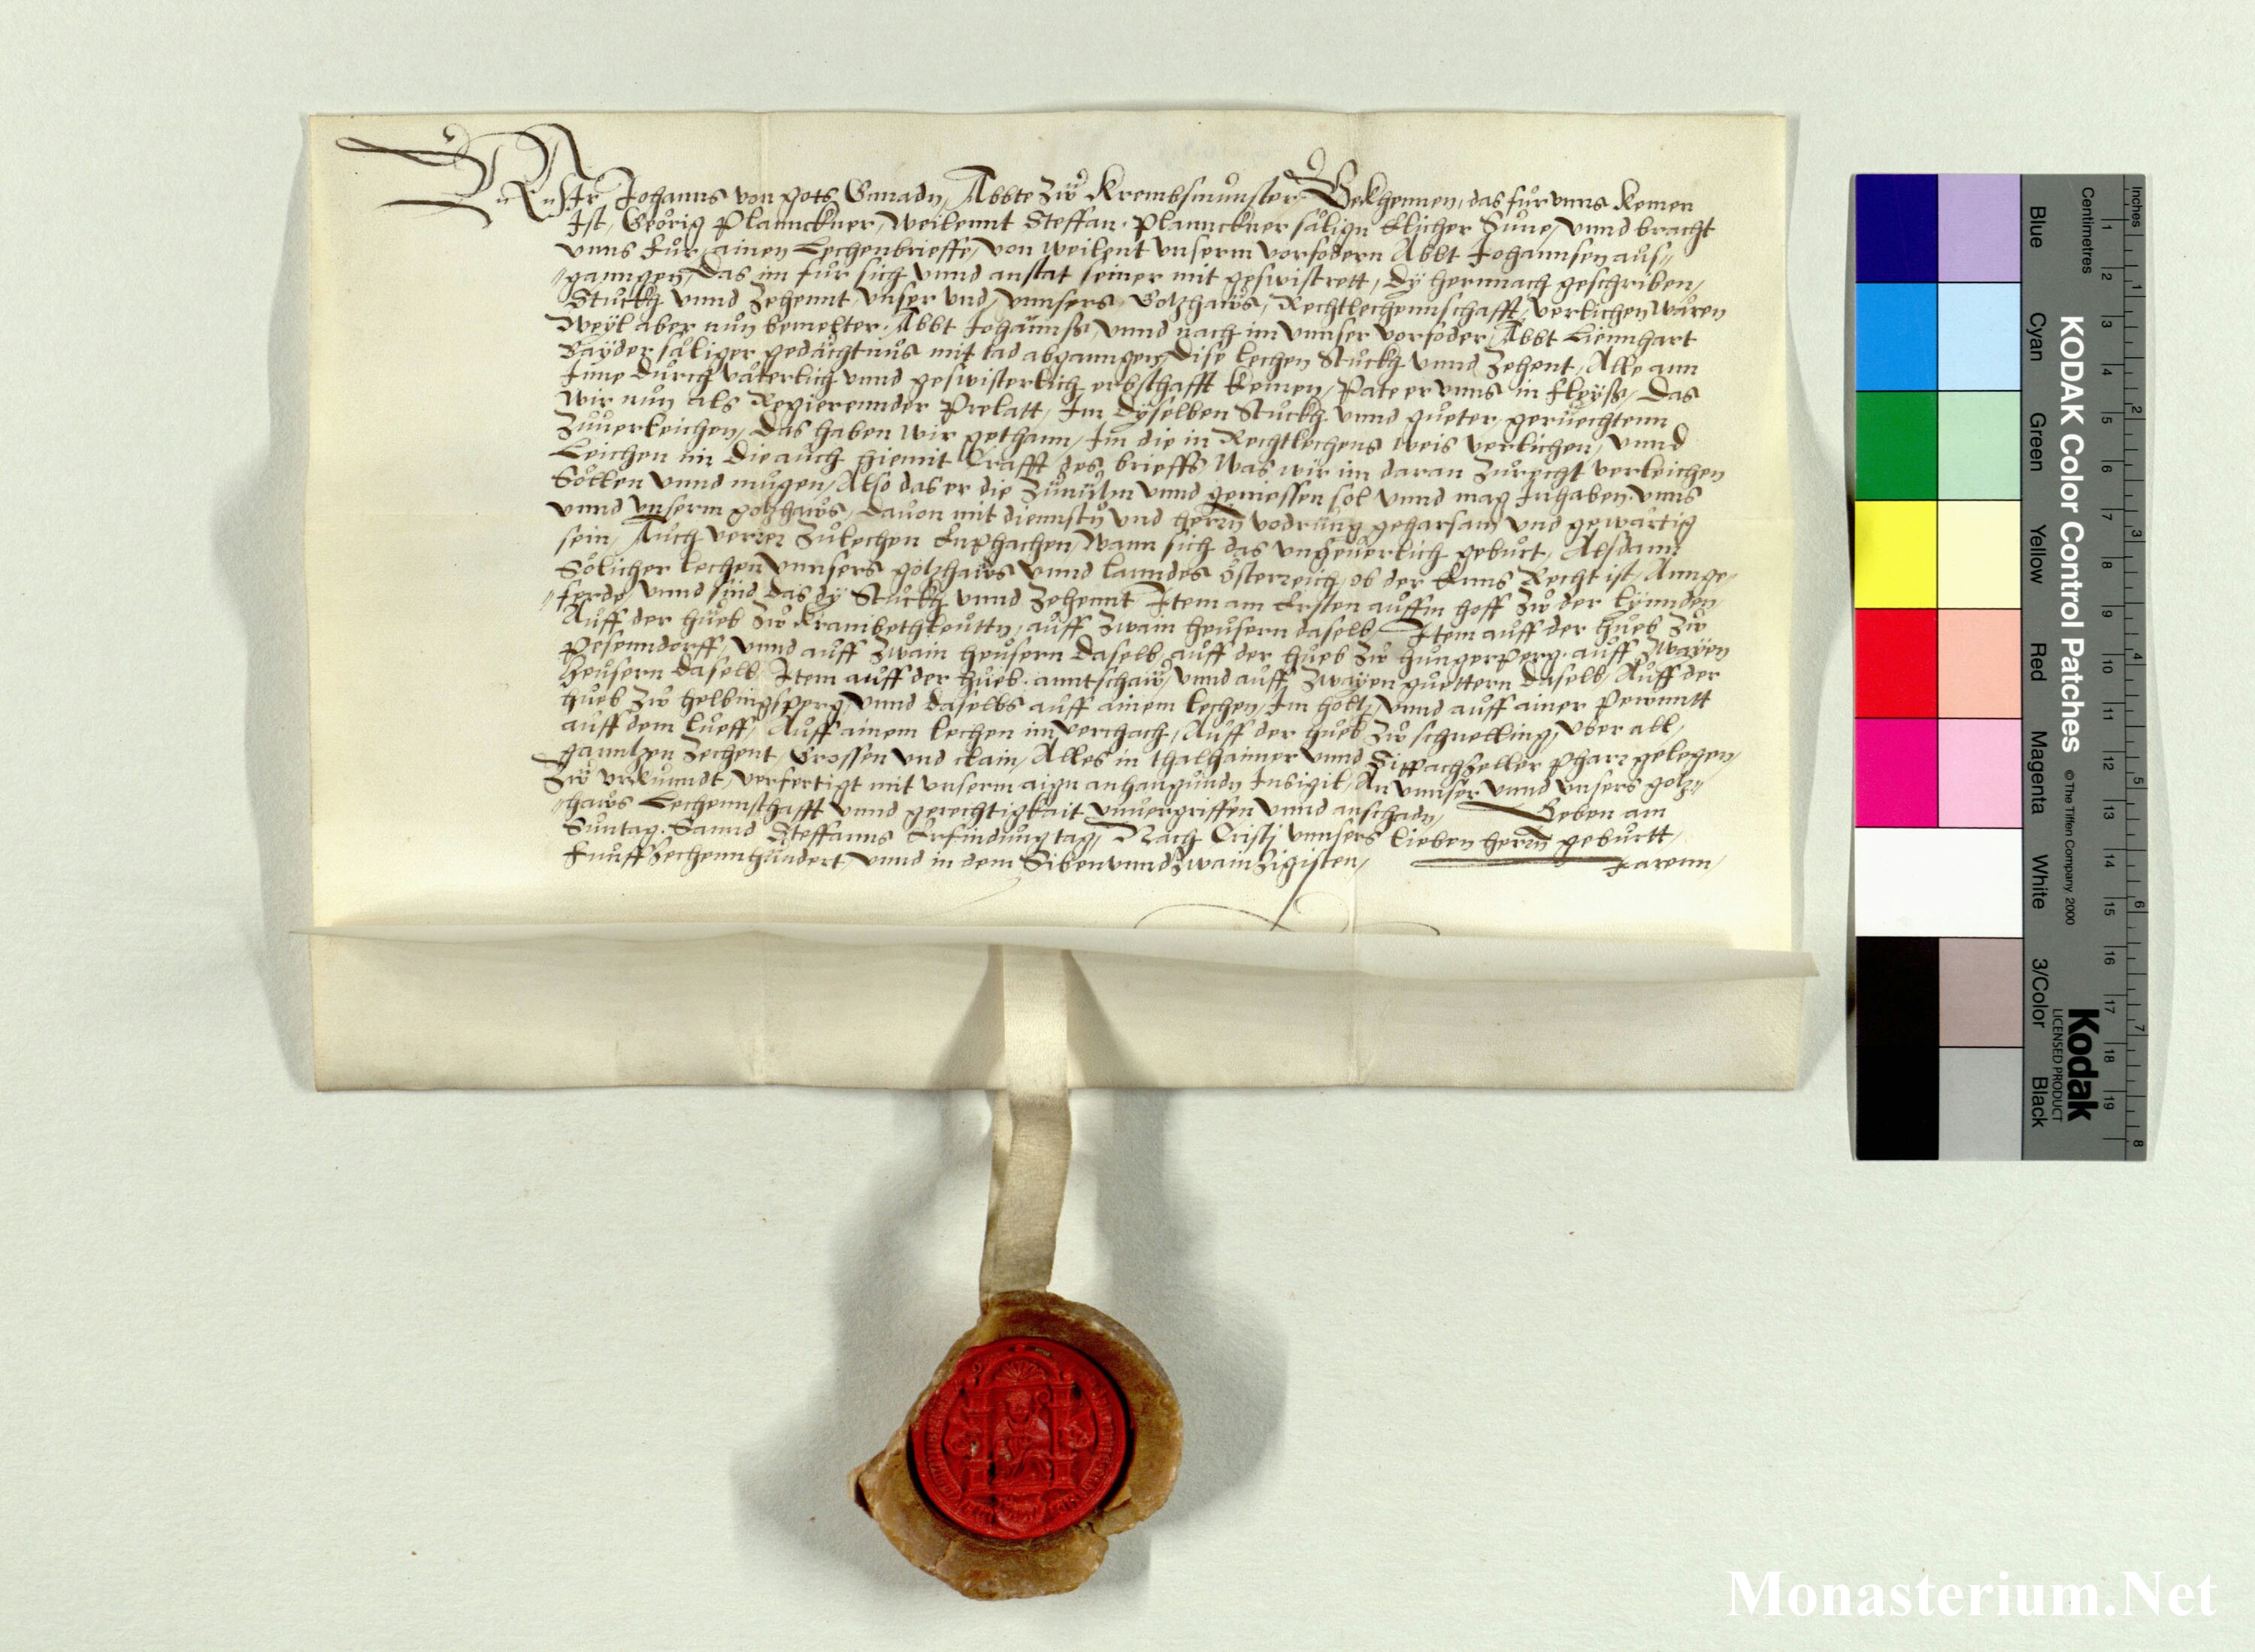 Wir Johanns von gots Gnadn, Abbte zw Krembsmunster Bekhennen, das fur vnns komen
Ist, Georig Planckner, weilennt Steffan Planckner salign Elicher Sune, vnnd bracht
vnns fur, ainen Lechenbrieffe, von weilent vnserm vorfodern Abbt Johannsen aus=
=ganngen, Das im fur sich vnnd anstat seiner mit geswistrett, dy hernnach geschriben,
Stuckh vnnd Zehennt, vnser vnd, vnnsers Gotzhaws, Rechtlechennschafft, verlichen waren
Weyl aber nun bemelter Abbt Johannss, vnnd nach im vnnser vorfoder, Abbt Liennhart
saliger gedachtnus mit tad abganngen, Dise lechen Stuckh vnnd Zehent, Alle ann
Inne durch vaterlich vnnd geswisterlich erbschafft komen, Pate er vnns in fleyss, Das
wir nun als Regierennder Prelatt, Im dyselben Stuckh vnnd gueter, geruechtenn
Zuuerleichen, Das haben wir gethann, Im die in Rechtlechens weis verlichen, vnnd
Leichen im die auch hiemit Crafft des brieffs, Was wir im daran zurecht verleichen
Sollen vnnd mugen, Also das er die vnnd geniessen sol vnnd mag Inhaben vnns
vnnd vnserm gotzhaws, dauon mit diennstn vnd herrn vodrung geharsam vnd gewartig
sein, Auch verrer zulechen Emphachen, Wann sich das vngeuerlich geburt, Alsdann
Solicher lechen vnnsers gotzhaws vnnd lanndes Osterreich, ob der Enns Recht ist, Annge=
=ferde, vnnd sind das dy Stuckh vnnd Zehennt Item am Ersten auffm hoff zw der Lynnden,
Auff der hueb zw Krambethleuttn, auff zwain heusern daselb, Item auff der hueb zw
Pesenndorff, vnnd auff zwain heusern daselb, auff der hueb zw hungerperg, auff zwayen
heusern daselb, Item auff der hueb anntschaw, vnnd auff zwayen guettern daselb, Auff der
hueb zw helbingsperg, vnnd daselbs auff ainem lechen, Im holtz, vnnd auff ainer Pewnntt
auff dem lueff, Auff ainem lechen im verchach, Auff der hueb zw schnelling, vber all,
ganntzen Zechent, Grossen vnd clain, Alles in thalhaimer vnnd Sippachzeller pharr gelegen,
Zw vrkunndt, verfertigt mit vnserm aign anhangundn Insigil, An vnnser vnnd vnsers gotz=
=haws Lechennschafft vnnd gerechtigkait vnuergriffen vnnd anschadn, Geben am
Suntag Sannd Steffanns Erfindung tag, Nach Cristj vnnsers lieben herrn geburtt,
Funffzechennhundert, vnnd in dem Sibenvnndzwainzigisten, Jarenn,
Inches
Centimetres
1 2 3 4 5 6 7 8
1 2 3 4 5 6 7 8 9 10 11 12 13 14 15 16 17 18 19
Blue Cyan Green Yellow Red Magenta White 3/Color Black
KODAK Color Control Patches © The Tiffen Company 2000
Kodak
LICENSED PRODUCT
Monasterium.Net